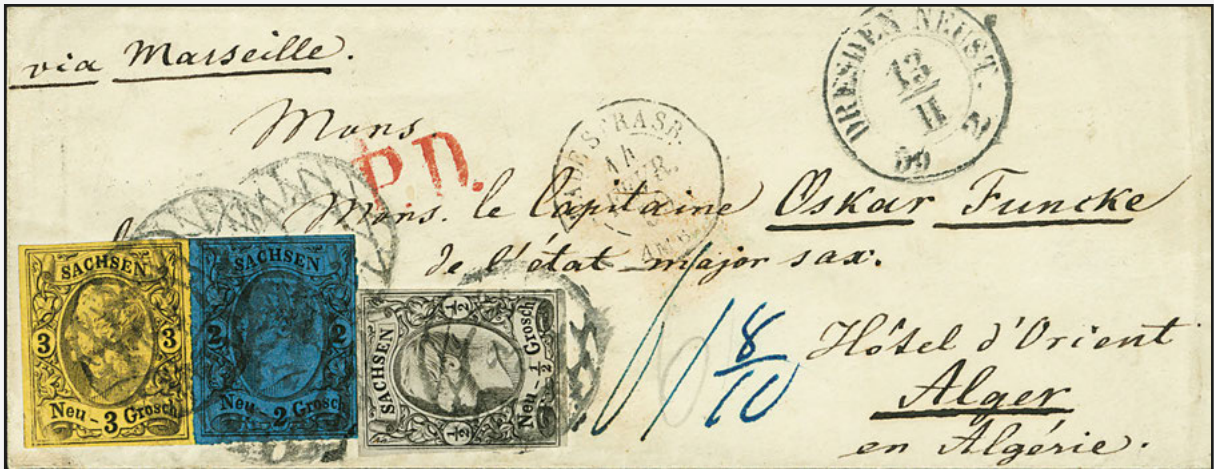 via Marseille.
DRESDEN NEUST.
13
II
Mons.
P.D.
14
Mons. le Capitaine Oskar Funcke
de l'état-major sax.
SACHSEN
3 3
Neu-3 Grosch
SACHSEN
2 2
Neu-2 Grosch
SACHSEN
½ ½
Neu-½ Grosch
½ ½
8
10
Hôtel d'Orient
Alger
en Algérie.